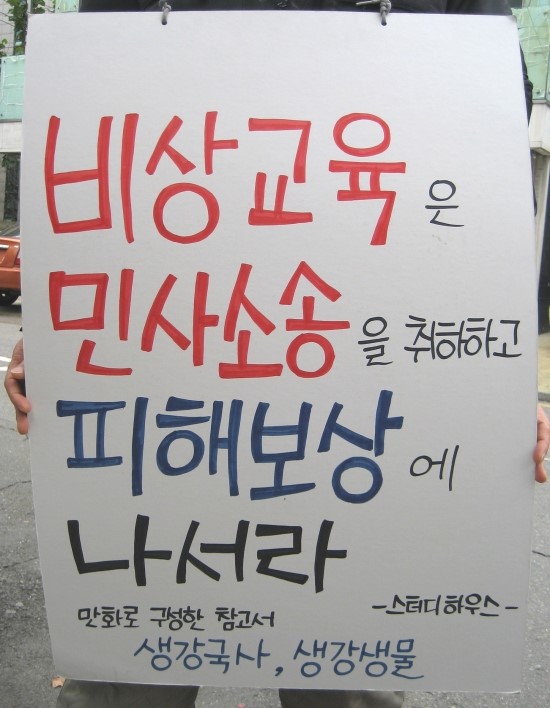 비상교육은
민사소송을 취하하고
피해보상에
나서라
-스터디하우스-
만화로 구성한 참고서
생강국사, 생강생물